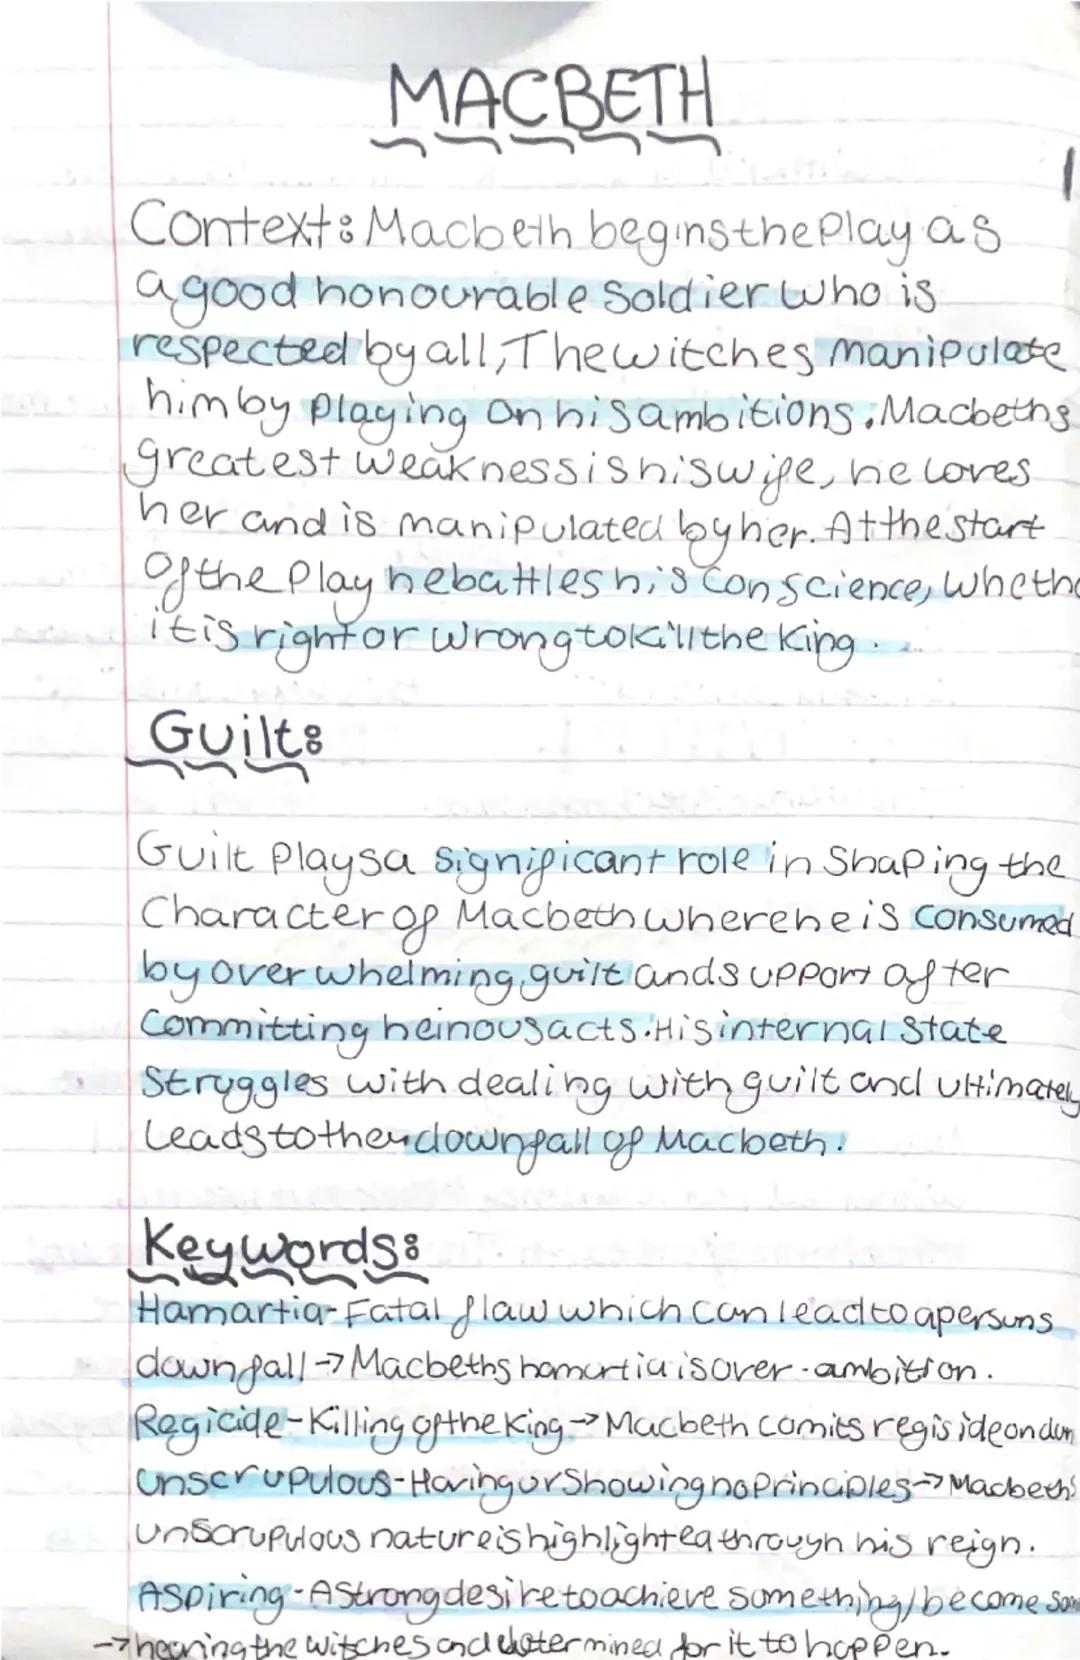 MACBETH
Context: Macbeth begins the Play as
a good honourable Soldier who is
respected by all, The witches manipulate
him by playing on his ambitions. Macbeths
greatest weakness is his wife, he loves
her and is manipulated by her. At the start
Of the Play he battles his conscience, wheth
it is right or wrong to kill the King.
Guilt:
Guilt Plays a significant role in Shaping the
Character of Macbeth where he is consumed
by overwhelming guilt and support after
Committing heinous acts. His internal state
Struggles with dealing with guilt and ultimately
leads to the downfall of Macbeth.
Keywords:
Hamartia - Fatal flaw which can lead to a persons
downfall → Macbeths hamartia is over-ambition.
Regicide - Killing of the King → Macbeth comits regiside on dun
Unscrupulous - Having or Showing no principles → Macbeths
unscrupulous nature is highlighted through his reign.
Aspiring - A Strong desire to achieve something/become som
→ hearing the witches and determined for it to happen.